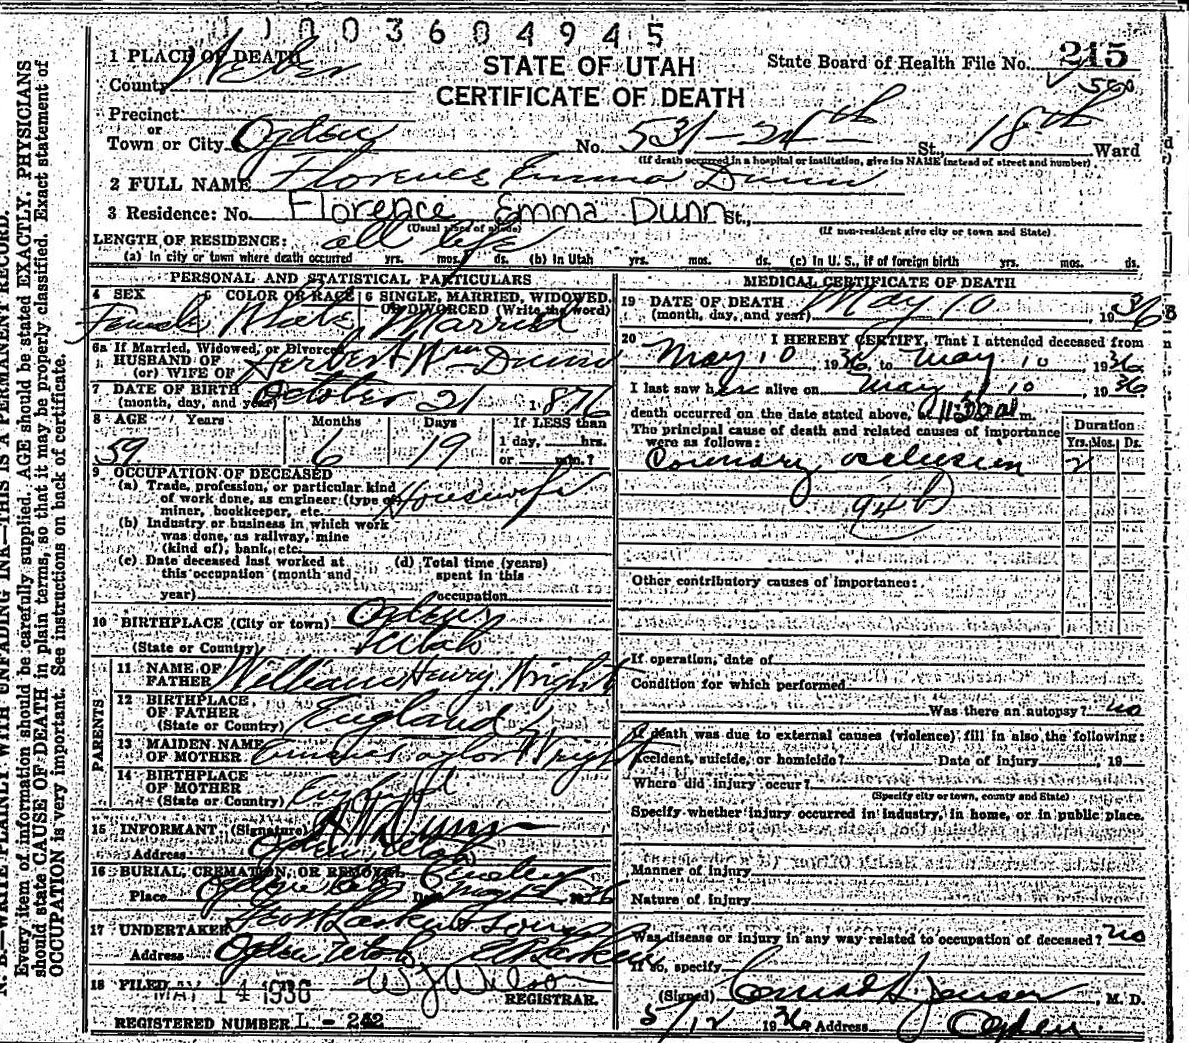 1003604945
1 PLACE OF DEATH
STATE OF UTAH
State Board of Health File No. 215
County Weber
CERTIFICATE OF DEATH
580
Precinct
or
Town or City Ogden No. 531 - 24th St., 18th Ward
(If death occurred in a hospital or institution, give its NAME instead of street and number)
2 FULL NAME Florence Emma Dunn
3 Residence: No. Florence Emma Dunn St.,
(Usual place of abode) (If non-resident give city or town and State)
LENGTH OF RESIDENCE: all life
(a) In city or town where death occurred yrs. mos. ds. (b) In Utah yrs. mos. ds. (c) In U. S., if of foreign birth yrs. mos. ds.
PERSONAL AND STATISTICAL PARTICULARS
4 SEX 5 COLOR OR RACE 6 SINGLE, MARRIED, WIDOWED,
OR DIVORCED (Write the word)
Female White Married
6a If Married, Widowed, or Divorced
HUSBAND OF
(or) WIFE OF Herbert Wm Dunn
7 DATE OF BIRTH
(month, day, and year) October 21 1876
8 AGE Years Months Days If LESS than
1 day, hrs.
59 6 19 or min.?
9 OCCUPATION OF DECEASED
(a) Trade, profession, or particular kind
of work done, as engineer (type of
miner, bookkeeper, etc. Housewife
(b) Industry or business in which work
was done, as railway, mine
(kind of), bank, etc.
(c) Date deceased last worked at (d) Total time (years)
this occupation (month and spent in this
year) occupation
10 BIRTHPLACE (City or town) Ogden
(State or Country) Utah
PARENTS
11 NAME OF
FATHER William Henry Wright
12 BIRTHPLACE
OF FATHER England
(State or Country)
13 MAIDEN NAME
OF MOTHER Emma Taylor Wright
14 BIRTHPLACE
OF MOTHER England
(State or Country)
15 INFORMANT (Signature) H W Dunn
Address Ogden, Utah
16 BURIAL, CREMATION, OR REMOVAL
Place Ogden Date May 36
17 UNDERTAKER Larkin & Sons
Address Ogden Utah Larkin
18 FILED MAY 14 1936 W J Wilson
REGISTRAR.
REGISTERED NUMBER L - 242
MEDICAL CERTIFICATE OF DEATH
19 DATE OF DEATH May 10
(month, day, and year) 1936
20 I HEREBY CERTIFY, That I attended deceased from
May 10, 1936, to May 10, 1936
I last saw her alive on May 10, 1936
death occurred on the date stated above, at 11:30 a.m.
The principal cause of death and related causes of importance
were as follows:
Duration
Yrs. Mos. Ds.
Coronary occlusion 2
94b
Other contributory causes of importance:
If operation, date of
Condition for which performed
Was there an autopsy? no
If death was due to external causes (violence) fill in also the following:
Accident, suicide, or homicide? Date of injury, 19
Where did injury occur?
(Specify city or town, county and State)
Specify whether injury occurred in industry, in home, or in public place.
Manner of injury
Nature of injury
Was disease or injury in any way related to occupation of deceased? no
If so, specify
(Signed) Conrad H. Jenson, M. D.
5/12 1936 Address Ogden
N. B.—WRITE PLAINLY, WITH UNFADING INK—THIS IS A PERMANENT RECORD.
Every item of information should be carefully supplied. AGE should be stated EXACTLY. PHYSICIANS
should state CAUSE OF DEATH in plain terms, so that it may be properly classified. Exact statement of
OCCUPATION is very important. See instructions on back of certificate.